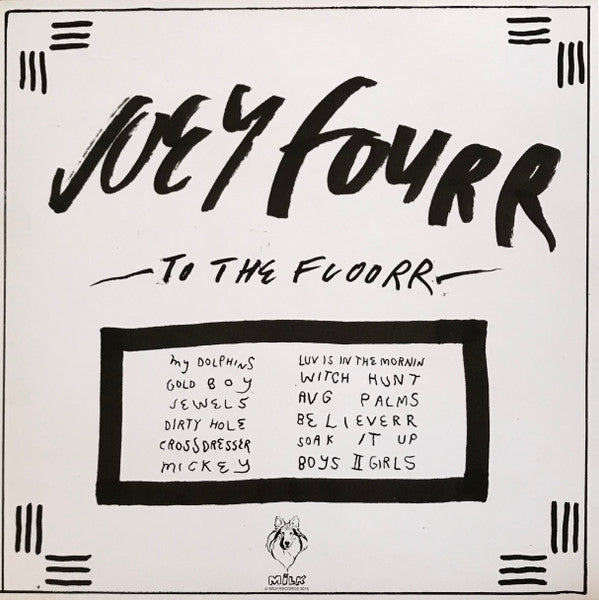 JOEY FOURR
TO THE FLOORR
MY DOLPHINS
GOLD BOY
JEWELS
DIRTY HOLE
CROSSDRESSER
MICKEY
LUV IS IN THE MORNIN
WITCH HUNT
AVG PALMS
BELIEVERR
SOAK IT UP
BOYS II GIRLS
MiLK
© MILK RECORDS 2015